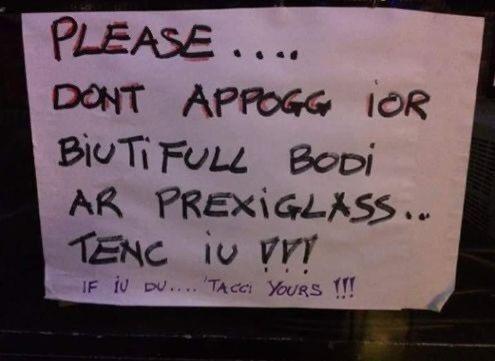 PLEASE....
DONT APPOGG iOR
BiUTiFULL BODi
AR PREXiGLASS...
TENC iU !!!
IF iU DU.... 'TACCi YOURS !!!